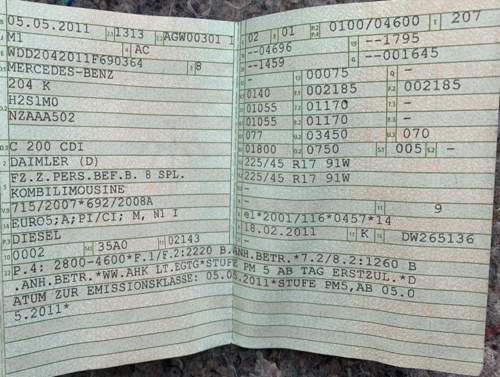 05.05.2011 2.1 1313 2.2 AGW00301 1
J M1 4 AC
E WDD2042011F690364 3 8
D.1 MERCEDES-BENZ
204 K
D.2 H2S1M0
NZAAA502
D.3 C 200 CDI
2 DAIMLER (D)
5 FZ.Z.PERS.BEF.B. 8 SPL.
KOMBILIMOUSINE
V.9 715/2007*692/2008A
14 EURO5;A;PI/CI; M, N1 I
P.3 DIESEL
10 0002 14.1 35A0 P.1 02143
22 P.4: 2800-4600*F.1/F.2:2220 B.ANH.BETR.*7.2/8.2:1260 B
.ANH.BETR.*WW.AHK LT.EGTG*STUFE PM 5 AB TAG ERSTZUL.*D
ATUM ZUR EMISSIONSKLASSE: 05.05.2011*STUFE PM5,AB 05.0
5.2011*
L 02 9 01 P.2 P.4 0100/04600 T 207
--04696 --1795
--1459 G --001645
- 13 00075 Q -
0140 002185 F.2 002185
01055 01170 7.3 -
01055 01170 -
077 03450 U.3 070
01800 O.2 0750 S.1 005 S.2 -
225/45 R17 91W
225/45 R17 91W
-
- 9
e1*2001/116*0457*14
6 18.02.2011 17 K 16 DW265136
-